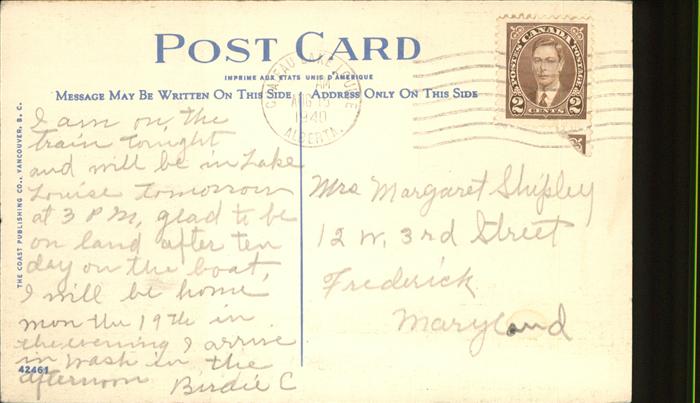 POST CARD
IMPRIME AUX ETATS UNIS D'AMERIQUE
MESSAGE MAY BE WRITTEN ON THIS SIDE
ADDRESS ONLY ON THIS SIDE
I am on the
train tonight
and will be in Lake
Louise tomorrow
at 3 P M, glad to be
on land after ten
day on the boat,
I will be home
mon the 19th in
the evening I arrive
in Wash in the
afternoon Birdie C
Mrs Margaret Shipley
12 W. 3rd Street
Frederick
Maryland
CHATEAU LAKE LOUISE
AM
AUG 15
1940
ALBERTA.
POSTES CANADA POSTAGE
2 CENTS 2
THE COAST PUBLISHING CO., VANCOUVER, B. C.
42461